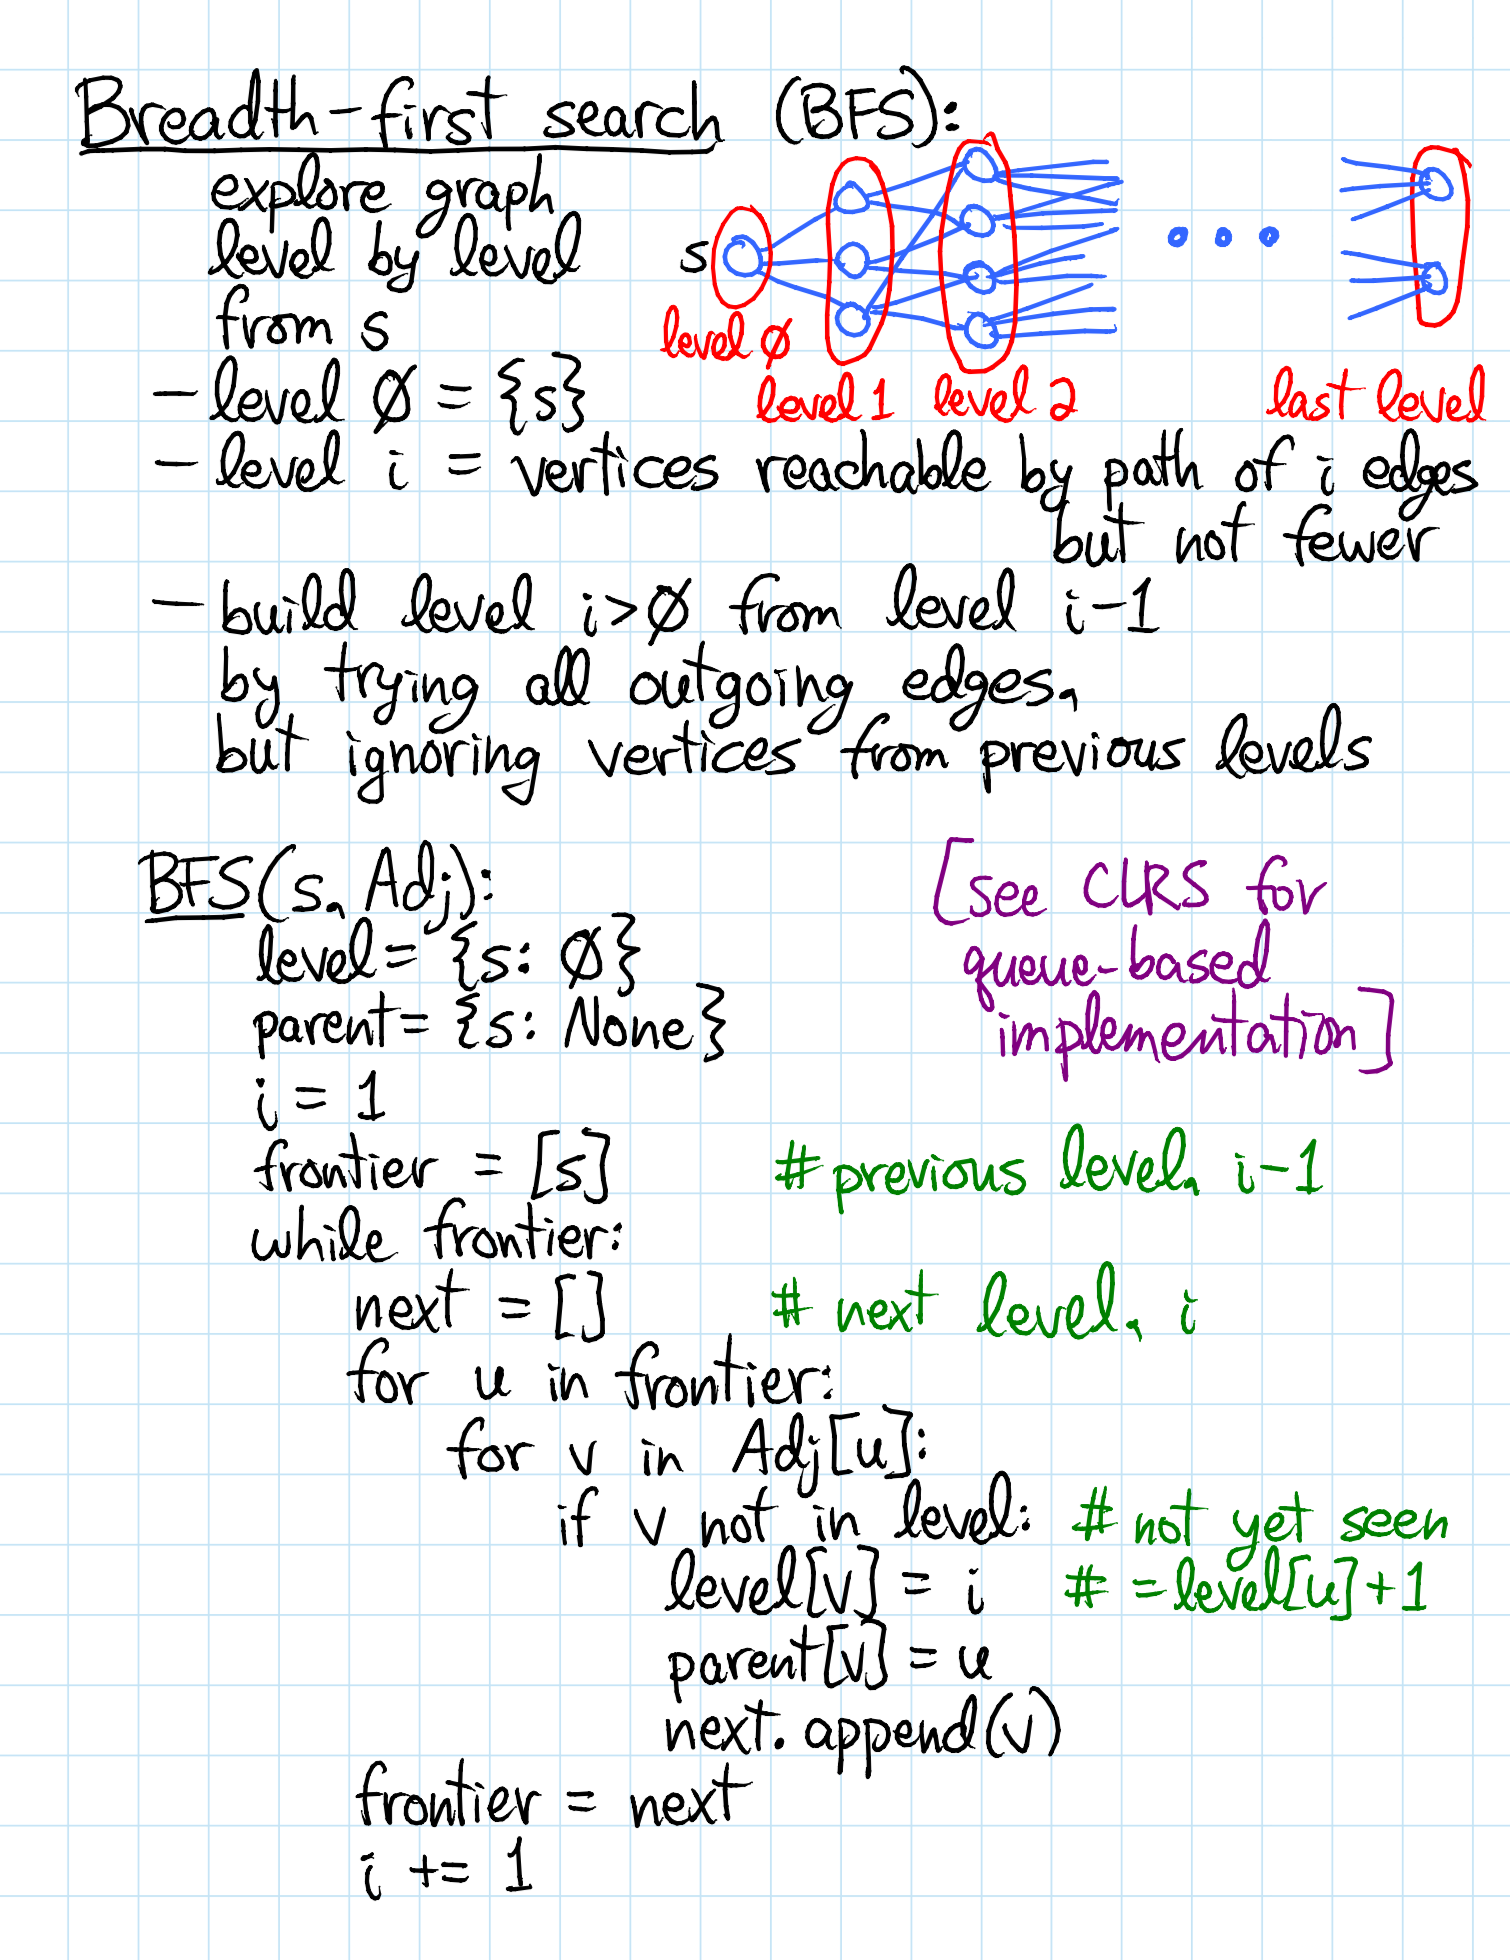 Breadth-first search (BFS):
explore graph
level by level
from s
s
level Ø
level 1
level 2
last level
- level Ø = {s}
- level i = vertices reachable by path of i edges
but not fewer
- build level i>Ø from level i-1
by trying all outgoing edges,
but ignoring vertices from previous levels
BFS(s, Adj):
[see CLRS for
queue-based
implementation]
level = {s: Ø}
parent = {s: None}
i = 1
frontier = [s] # previous level, i-1
while frontier:
next = [] # next level, i
for u in frontier:
for v in Adj[u]:
if v not in level: # not yet seen
level[v] = i # = level[u]+1
parent[v] = u
next.append(v)
frontier = next
i += 1